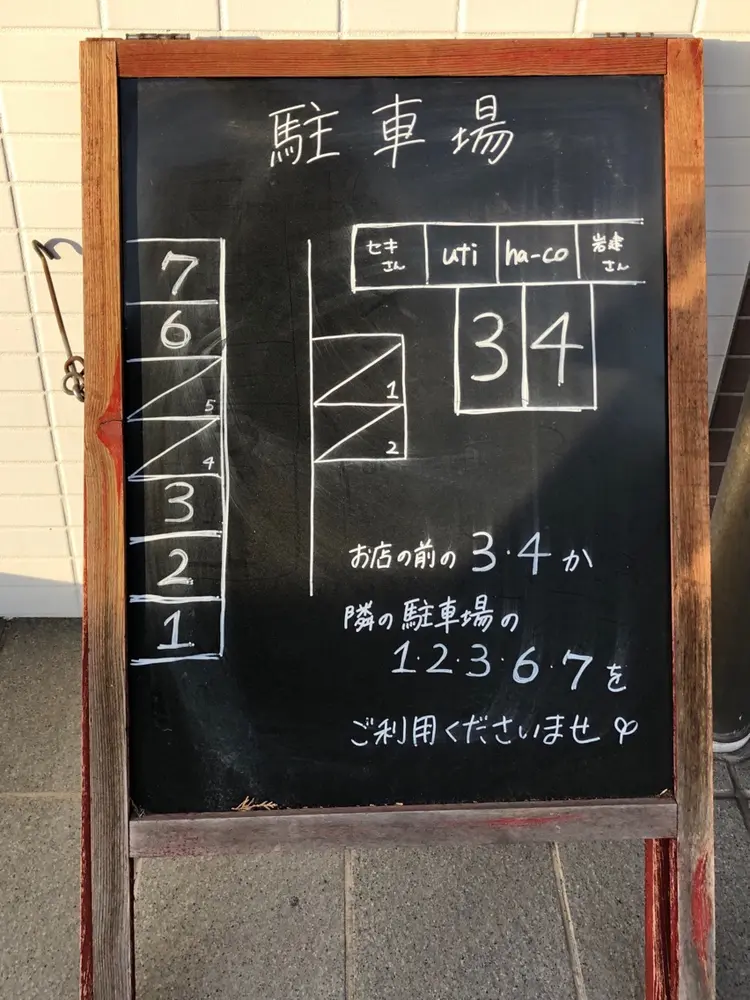 駐車場
セキさん uti ha-co 岩建さん
3 4
7
6
5
4
3
2
1
1
2
お店の前の 3・4 か
隣の駐車場の
1・2・3・6・7 を
ご利用くださいませ